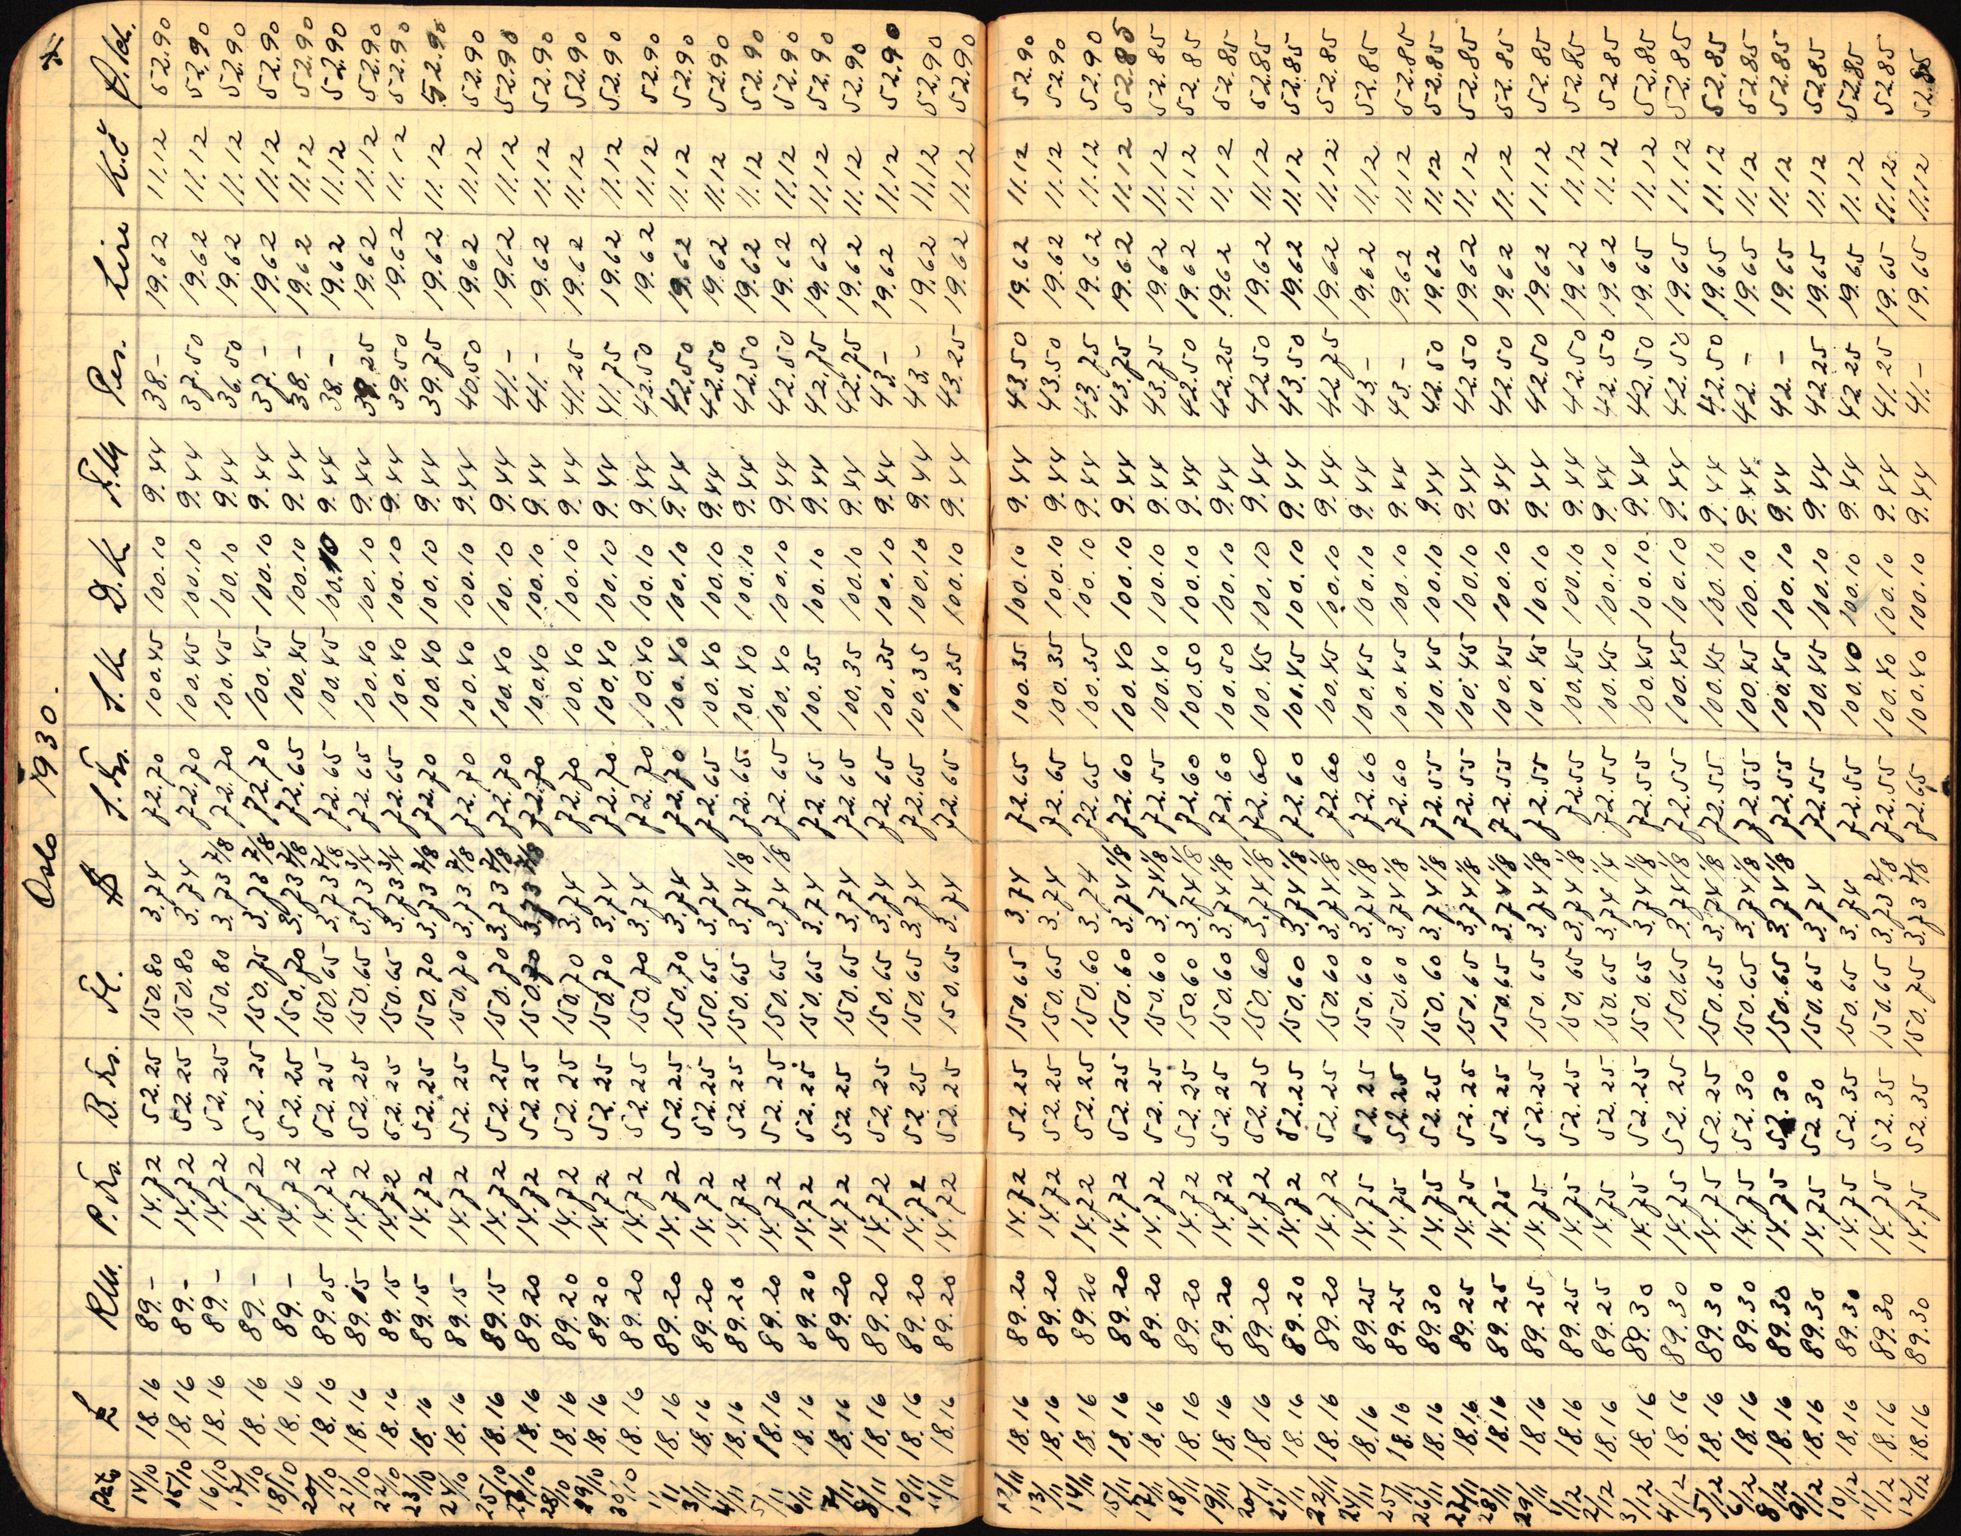 Oslo 1930.
Dato £ RM. P.frs. B.frs. Fl. $ S.frs. S.Kr D.Kr F.M Pes. Lire K.č Ö.Sch.
14/10 18.16 89.- 14.72 52.25 150.80 3.74 72.70 100.45 100.10 9.44 38.- 19.62 11.12 52.90
15/10 18.16 89.- 14.72 52.25 150.80 3.74 72.70 100.45 100.10 9.44 37.50 19.62 11.12 52.90
16/10 18.16 89.- 14.72 52.25 150.80 3.73 7/8 72.70 100.45 100.10 9.44 36.50 19.62 11.12 52.90
17/10 18.16 89.- 14.72 52.25 150.75 3.73 7/8 72.70 100.45 100.10 9.44 37.- 19.62 11.12 52.90
18/10 18.16 89.- 14.72 52.25 150.70 3.73 7/8 72.65 100.45 100.10 9.44 38.- 19.62 11.12 52.90
20/10 18.16 89.05 14.72 52.25 150.65 3.73 7/8 72.65 100.45 100.10 9.44 38.- 19.62 11.12 52.90
21/10 18.16 89.15 14.72 52.25 150.65 3.73 3/4 72.65 100.40 100.10 9.44 39.25 19.62 11.12 52.90
22/10 18.16 89.15 14.72 52.25 150.65 3.73 3/4 72.65 100.40 100.10 9.44 39.50 19.62 11.12 52.90
23/10 18.16 89.15 14.72 52.25 150.70 3.73 7/8 72.70 100.40 100.10 9.44 39.75 19.62 11.12 52.90
24/10 18.16 89.15 14.72 52.25 150.70 3.73 7/8 72.70 100.40 100.10 9.44 40.50 19.62 11.12 52.90
25/10 18.16 89.15 14.72 52.25 150.70 3.73 7/8 72.70 100.40 100.10 9.44 41.- 19.62 11.12 52.90
27/10 18.16 89.20 14.72 52.25 150.70 3.73 7/8 72.70 100.40 100.10 9.44 41.- 19.62 11.12 52.90
28/10 18.16 89.20 14.72 52.25 150.70 3.74 72.70 100.40 100.10 9.44 41.25 19.62 11.12 52.90
29/10 18.16 89.20 14.72 52.25 150.70 3.74 72.70 100.40 100.10 9.44 41.75 19.62 11.12 52.90
30/10 18.16 89.20 14.72 52.25 150.70 3.74 72.70 100.40 100.10 9.44 42.50 19.62 11.12 52.90
1/11 18.16 89.20 14.72 52.25 150.70 3.74 72.70 100.40 100.10 9.44 42.50 19.62 11.12 52.90
3/11 18.16 89.20 14.72 52.25 150.65 3.74 72.65 100.40 100.10 9.44 42.50 19.62 11.12 52.90
4/11 18.16 89.20 14.72 52.25 150.65 3.74 1/8 72.65 100.40 100.10 9.44 42.50 19.62 11.12 52.90
5/11 18.16 89.20 14.72 52.25 150.65 3.74 1/8 72.65 100.40 100.10 9.44 42.50 19.62 11.12 52.90
6/11 18.16 89.20 14.72 52.25 150.65 3.74 72.65 100.35 100.10 9.44 42.75 19.62 11.12 52.90
7/11 18.16 89.20 14.72 52.25 150.65 3.74 72.65 100.35 100.10 9.44 42.75 19.62 11.12 52.90
8/11 18.16 89.20 14.72 52.25 150.65 3.74 72.65 100.35 100.10 9.44 43.- 19.62 11.12 52.90
10/11 18.16 89.20 14.72 52.25 150.65 3.74 72.65 100.35 100.10 9.44 43.- 19.62 11.12 52.90
11/11 18.16 89.20 14.72 52.25 150.65 3.74 72.65 100.35 100.10 9.44 43.25 19.62 11.12 52.90
12/11 18.16 89.20 14.72 52.25 150.65 3.74 72.65 100.35 100.10 9.44 43.50 19.62 11.12 52.90
13/11 18.16 89.20 14.72 52.25 150.65 3.74 72.65 100.35 100.10 9.44 43.50 19.62 11.12 52.90
14/11 18.16 89.20 14.72 52.25 150.60 3.74 72.65 100.35 100.10 9.44 43.75 19.62 11.12 52.90
15/11 18.16 89.20 14.72 52.25 150.60 3.74 1/8 72.60 100.40 100.10 9.44 43.75 19.62 11.12 52.85
17/11 18.16 89.20 14.72 52.25 150.60 3.74 1/8 72.55 100.40 100.10 9.44 43.75 19.62 11.12 52.85
18/11 18.16 89.20 14.72 52.25 150.60 3.74 1/8 72.60 100.50 100.10 9.44 42.50 19.62 11.12 52.85
19/11 18.16 89.20 14.72 52.25 150.60 3.74 1/8 72.60 100.50 100.10 9.44 42.25 19.62 11.12 52.85
20/11 18.16 89.20 14.72 52.25 150.60 3.74 1/8 72.60 100.45 100.10 9.44 42.50 19.62 11.12 52.85
21/11 18.16 89.20 14.72 52.25 150.60 3.74 1/8 72.60 100.45 100.10 9.44 43.50 19.62 11.12 52.85
22/11 18.16 89.20 14.72 52.25 150.60 3.74 1/8 72.60 100.45 100.10 9.44 42.75 19.62 11.12 52.85
24/11 18.16 89.25 14.75 52.25 150.60 3.74 1/8 72.60 100.45 100.10 9.44 43.- 19.62 11.12 52.85
25/11 18.16 89.25 14.75 52.25 150.60 3.74 1/8 72.60 100.45 100.10 9.44 43.- 19.62 11.12 52.85
26/11 18.16 89.30 14.75 52.25 150.60 3.74 1/8 72.55 100.45 100.10 9.44 42.50 19.62 11.12 52.85
27/11 18.16 89.25 14.75 52.25 150.65 3.74 1/8 72.55 100.45 100.10 9.44 42.50 19.62 11.12 52.85
28/11 18.16 89.25 14.75 52.25 150.65 3.74 1/8 72.55 100.45 100.10 9.44 42.50 19.62 11.12 52.85
29/11 18.16 89.25 14.75 52.25 150.65 3.74 1/8 72.55 100.45 100.10 9.44 42.50 19.62 11.12 52.85
1/12 18.16 89.25 14.75 52.25 150.65 3.74 1/8 72.55 100.45 100.10 9.44 42.50 19.62 11.12 52.85
2/12 18.16 89.25 14.75 52.25 150.65 3.74 1/4 72.55 100.45 100.10 9.44 42.50 19.62 11.12 52.85
3/12 18.16 89.30 14.75 52.25 150.65 3.74 1/8 72.55 100.45 100.10 9.44 42.50 19.65 11.12 52.85
4/12 18.16 89.30 14.75 52.25 150.65 3.74 1/8 72.55 100.45 100.10 9.44 42.50 19.65 11.12 52.85
5/12 18.16 89.30 14.75 52.25 150.65 3.74 1/8 72.55 100.45 100.10 9.44 42.50 19.65 11.12 52.85
6/12 18.16 89.30 14.75 52.30 150.65 3.74 1/8 72.55 100.45 100.10 9.44 42.- 19.65 11.12 52.85
8/12 18.16 89.30 14.75 52.30 150.65 3.74 1/8 72.55 100.45 100.10 9.44 42.- 19.65 11.12 52.85
9/12 18.16 89.30 14.75 52.30 150.65 3.74 72.55 100.45 100.10 9.44 42.25 19.65 11.12 52.85
10/12 18.16 89.30 14.75 52.35 150.65 3.74 72.55 100.40 100.10 9.44 42.25 19.65 11.12 52.85
11/12 18.16 89.30 14.75 52.35 150.65 3.73 7/8 72.55 100.40 100.10 9.44 41.25 19.65 11.12 52.85
12/12 18.16 89.30 14.75 52.35 150.75 3.73 7/8 72.65 100.40 100.10 9.44 41.- 19.65 11.12 52.85